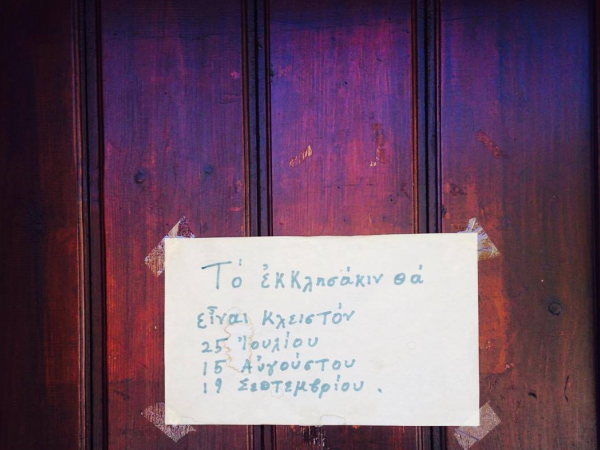 Τό ἐκκλησάκιν θά
εἶναι κλειστόν
25 Ἰουλίου
15 Αὐγούστου
19 Σεπτεμβρίου.